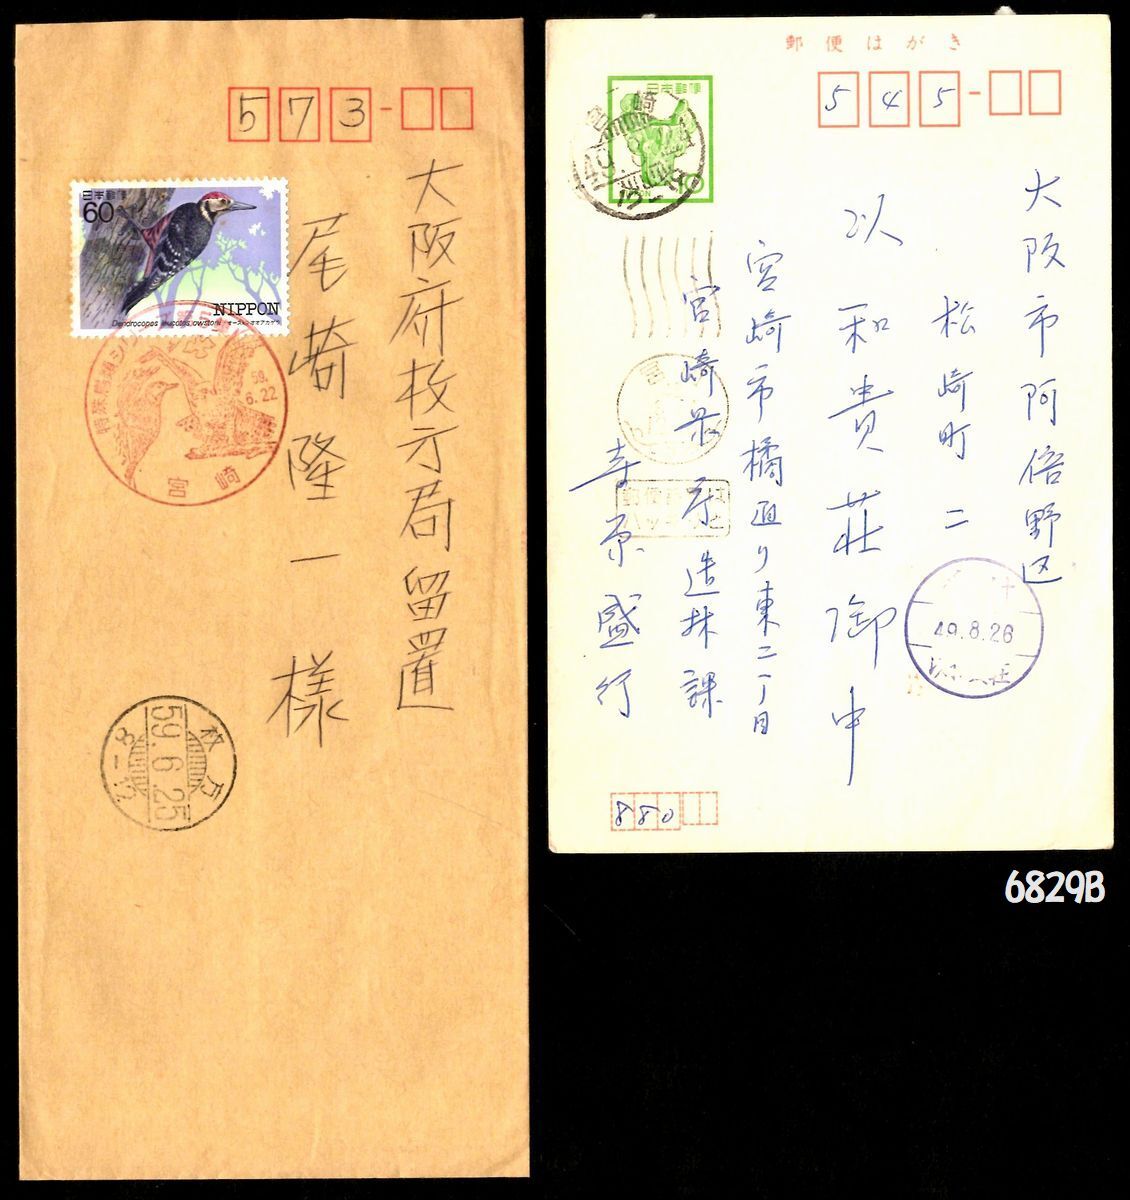 573
日本郵便
60
NIPPON
Dendrocopos leucotos owstoni・オーストンオオアカゲラ
59.
6.22
宮崎
大阪府枚方局留置
尾崎隆一様
枚方
59.6.25
8-12
郵便はがき
545
日本郵便
崎
大阪市阿倍野区
松崎町二
以和貴荘御中
宮崎市橘通り東二丁目
宮崎県庁造林課
寺原盛行
宮
49.8.26
880
6829B